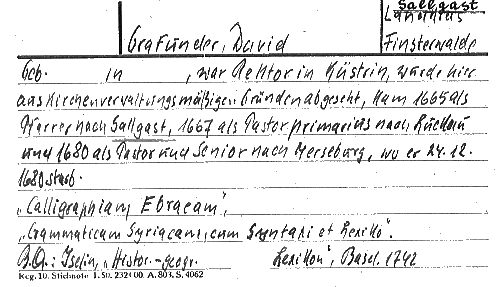 Sallgast
Landkreis
Grafunder, David Finsterwalde
Geb. in , war Rektor in Küstrin, wurde hier
aus kirchenverwaltungsmäßigen Gründen abgesetzt, kam 1665 als
Pfarrer nach Sallgast, 1667 als Pastor primarius nach Luckau
und 1680 als Pastor und Senior nach Merseburg, wo er 24.12.
1680 starb.
„Calligraphiam Ebraeam",
„Grammaticam Syriacam, cum Syntaxi et Lexiko".
B.Q.: Iselin, „Histor.-geogr. Lexikon", Basel 1742
Keg. 10. Stichnote 1. 50. 232400. A. 803. S. 4062